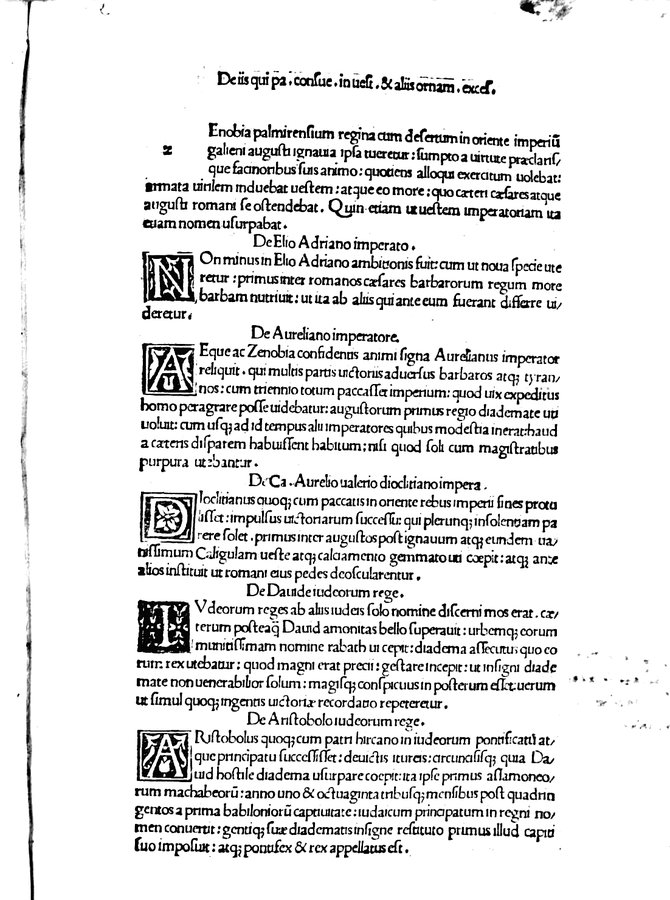 De iis qui pa . consue . in uest . & aliis ornam̄ . exces .
z Enobia palmirensium regina cum desertum in oriente imperiū
galieni augusti ignauia ipsa tueretur : sumpto a uirtute præclaris/
que facinoribus suis animo : quotiens alloqui exercitum uolebat :
armata uirilem induebat uestem : atque eo more : quo cæteri cæsares atque
augusti romani se ostendebat . Quin etiam ut uestem imperatoriam ita
etiam nomen usurpabat .
De Elio Adriano imperato .
NOn minus in Elio Adriano ambitionis fuit : cum ut noua specie ute
retur : primus inter romanos cæsares barbarorum regum more
barbam nutriuit : ut ita ab aliis qui ante eum fuerant differre ui/
deretur .
De Aureliano imperatore .
AEque ac Zenobia confidentis animi signa Aurelianus imperator
reliquit . qui multis partis uictoriis aduersus barbaros atq; tyran/
nos : cum triennio totum paccasset imperium : quod uix expeditus
homo peragrare posse uidebatur : augustorum primus regio diademate uti
uoluit : cum usq; ad id tempus alii imperatores quibus modestia inerat : haud
a cæteris disparem habuissent habitum ; nisi quod soli cum magistratibus
purpura utebantur .
De Ca . Aurelio ualerio dioclitiano impera .
DIoclitianus quoq; cum paccatis in oriente rebus imperii fines protu
lisset : impulsus uictoriarum successu : qui plerunq; insolentiam pa
rere solet . primus inter augustos post ignauum atq; eundem ua/
nissimum Caligulam ueste atq; calciamento gemmato uti coepit : atq; ante
alios instituit ut romani eius pedes deoscularentur .
De Dauide iudeorum rege .
IVdeorum reges ab aliis iudeis solo nomine discerni mos erat . cæ/
terum posteaq̄ Dauid amonitas bello superauit : urbemq; eorum
munitissimam nomine rabath ui cepit : diadema assecutus quo eo
rum rex utebatur : quod magni erat precii : gestare incepit : ut insigni diade
mate non uenerabilior solum : magisq; conspicuus in posterum esset : uerum
ut simul quoq; ingentis uictoriæ recordatio repeteretur .
De Aristobolo iudeorum rege .
ARistobolus quoq; cum patri hircano in iudeorum pontificatū at/
que principatu successisset : deuictis itureis : circuncisisq; qua Da/
uid hostile diadema usurpare coepit : ita ipse primus asamoneo/
rum machabeorū : anno uno & octuaginta tribusq; mensibus post quadrin
gentos a prima babiloniorū captiuitate : iudaicum principatum in regni no/
men conuertit : gentiq; suæ diadematis insigne restituto primus illud capiti
suo imposuit : atq; pontifex & rex appellatus est .